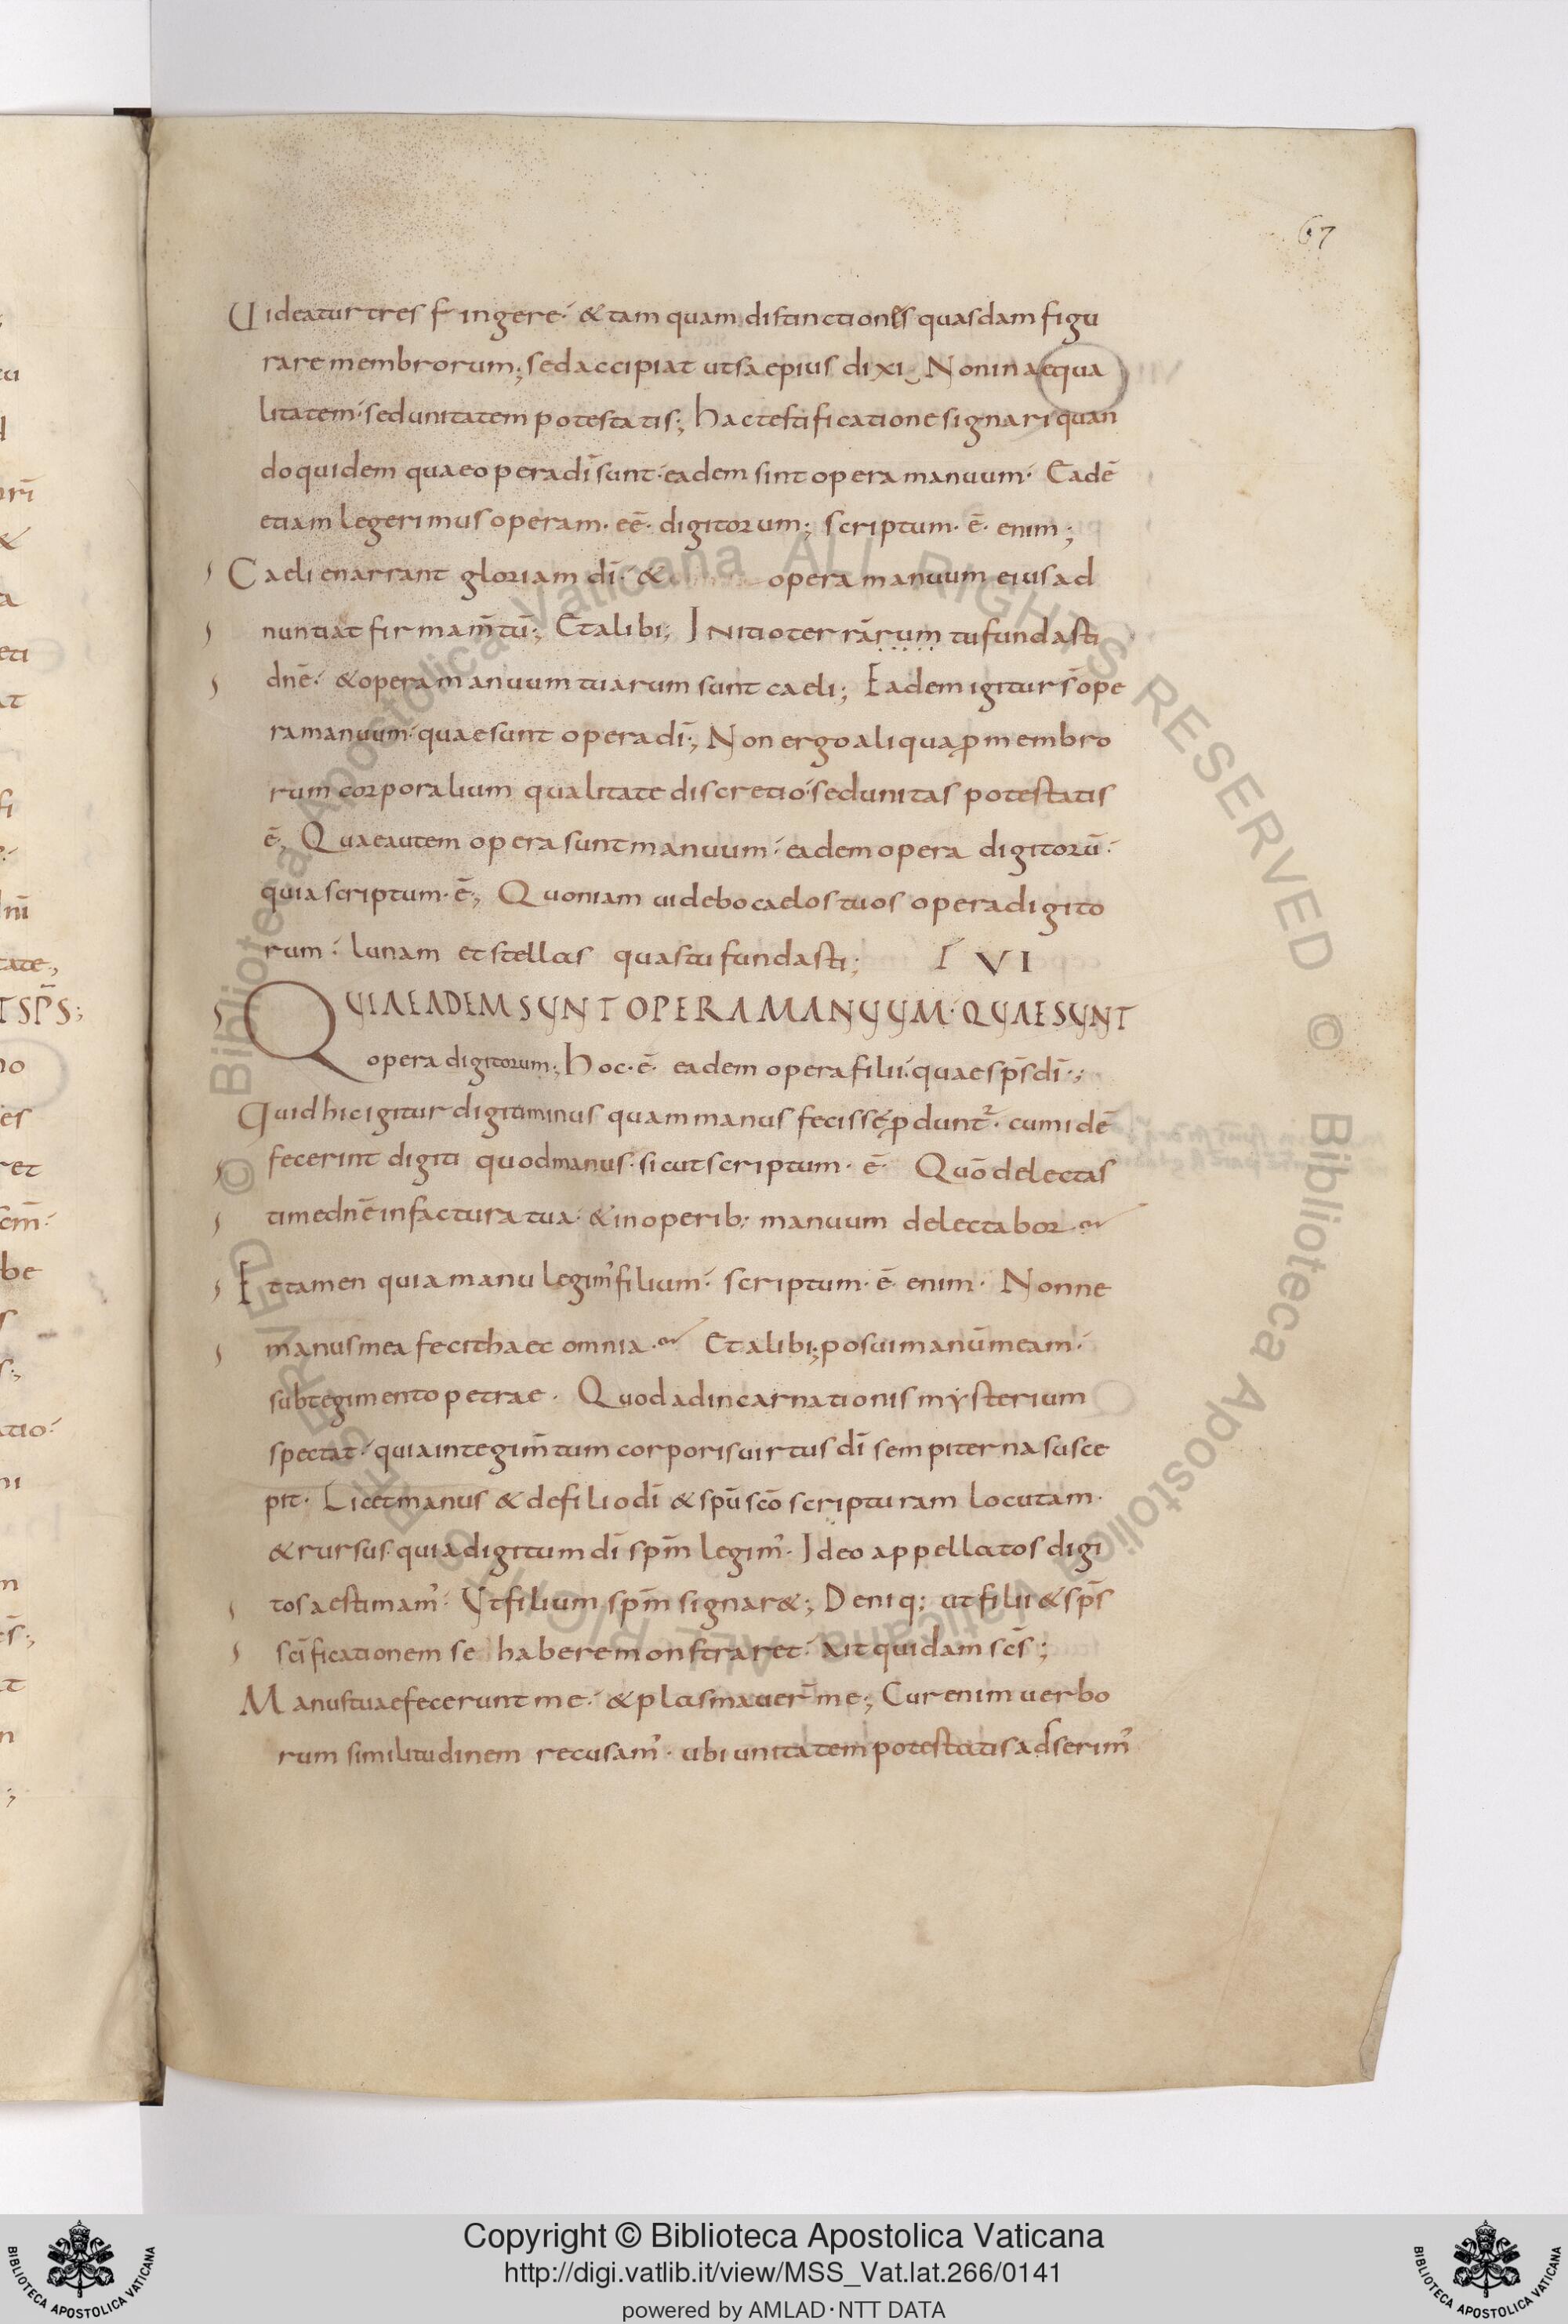 67
Uideatur tres fingere· & tam quam distinctiones quasdam figu
rare membrorum; sed accipiat ut saepius dixi; Non inaequa
litatem· sed unitatem potestatis; hac testificatione signari quan
do quidem quae opera dī sunt· eadem sint opera manuum· Eadē
etiam legerimus operam· eē· digitorum; scriptum· ē· enim;
Caeli enarrant gloriam dī· & opera manuum eius ad
nuntiat firmam̄tū; Et alibi; Initio terrārum tu fundasti
dnē· & opera manuum tuarum sunt caeli; Eadem igitur s̄ ope
ra manuum· quae sunt opera dī; Non ergo aliqua ꝑ membro
rum corporalium qualitate discretio· sed unitas potestatis
ē; Quae autem opera sunt manuum· eadem opera digitorū·
quia scriptum· ē; Quoniam uidebo caelos tuos opera digito
rum· lunam et stellas quas tu fundasti; VI
QUIA EADEM SUNT OPERA MANUUM· QUAE SUNT
opera digitorum; hoc· ē· eadem opera filii· quae sps̄ dī·;
Quid hic igitur digiti minus quam manus fecisse ꝓdunt᷑· cum idē
fecerint digiti quod manus· sicut scriptum· ē· Quō delectas
ti me dnē in factura tua· & in operib; manuum delectabor
Et tamen quia manu legim' filium· scriptum· ē· enim· Nonne
manus mea fecit haec omnia· Et alibi; posui manū meam·
sub tegimento petrae· Quod ad incarnationis mysterium
spectat· quia integim̄tum corporis uirtus dī sempiterna susce
pit· Licet manus & de filio dī & spū scō scripturam locutam·
& rursus· quia digitum dī spm̄ legim'· Ideo appellatos digi
tos aestimam'· Ut filium spm̄ signar&; Deniq; ut filii & sps̄
scīficationem se habere monstraret· Ait quidam scs̄;
Manus tuae fecerunt me· & plasmauer̄ me; Cur enim uerbo
rum similitudinem recusam'· ubi unitatem potestatis adserim'
Copyright © Biblioteca Apostolica Vaticana
http://digi.vatlib.it/view/MSS_Vat.lat.266/0141
powered by AMLAD·NTT DATA